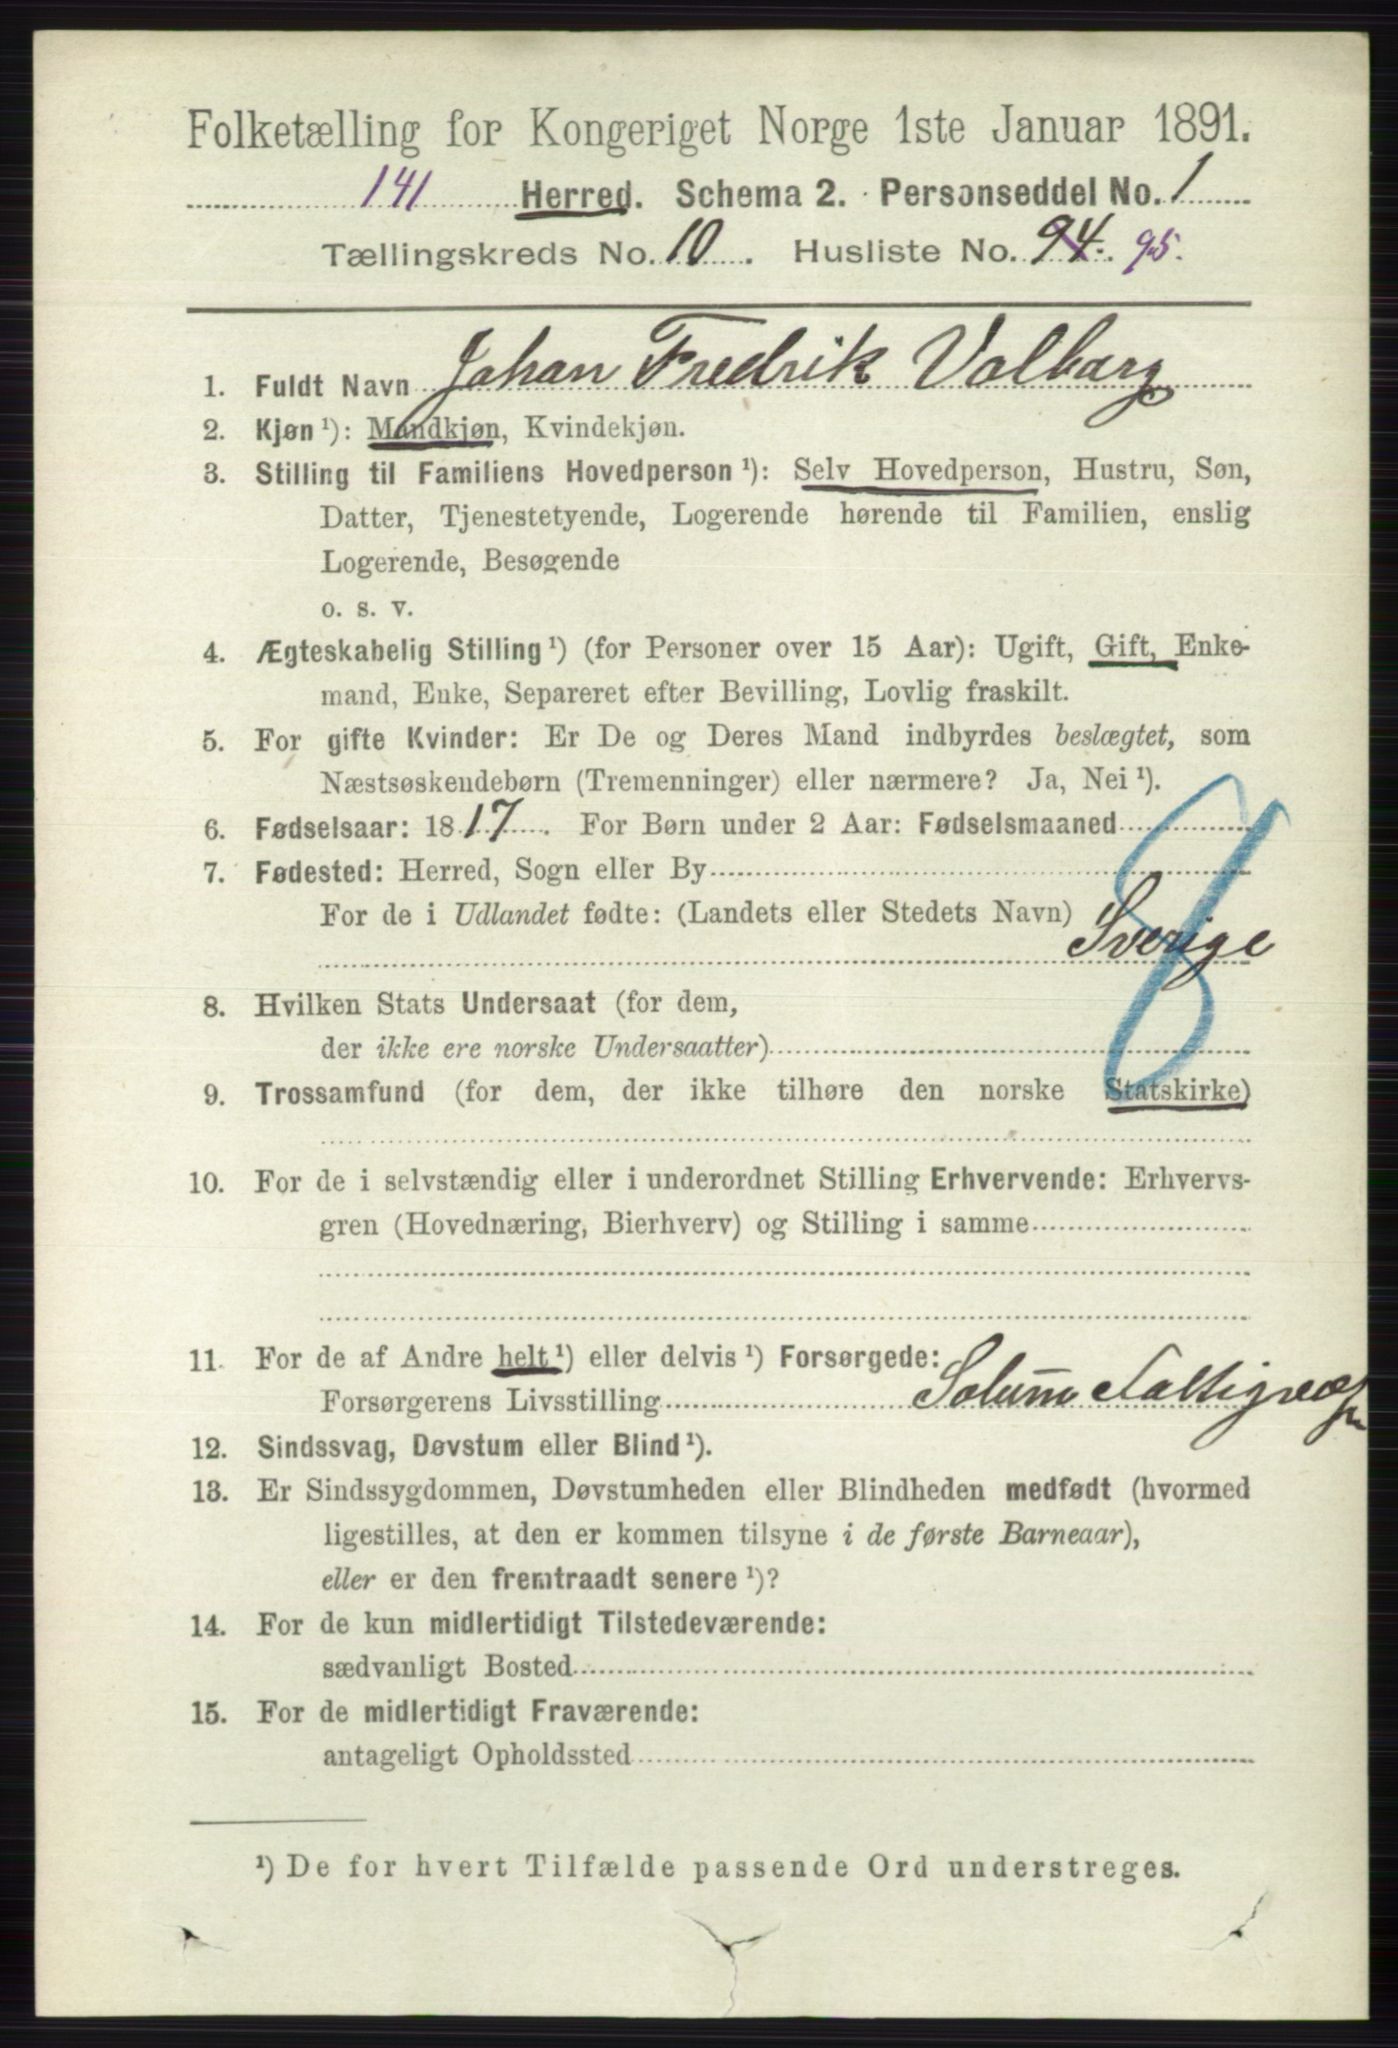 Folketælling for Kongeriget Norge 1ste Januar 1891.
141 Herred. Schema 2. Personseddel No. 1
Tællingskreds No. 10. Husliste No. 94. 95.
1. Fuldt Navn Johan Fredrik Valbarg
2. Kjøn ¹): Mandkjøn, Kvindekjøn.
3. Stilling til Familiens Hovedperson ¹): Selv Hovedperson, Hustru, Søn,
Datter, Tjenestetyende, Logerende hørende til Familien, enslig
Logerende, Besøgende
o. s. v.
4. Ægteskabelig Stilling ¹) (for Personer over 15 Aar): Ugift, Gift, Enke-
mand, Enke, Separeret efter Bevilling, Lovlig fraskilt.
5. For gifte Kvinder: Er De og Deres Mand indbyrdes beslægtet, som
Næstsøskendebørn (Tremenninger) eller nærmere? Ja, Nei ¹).
6. Fødselsaar: 1817. For Børn under 2 Aar: Fødselsmaaned
7. Fødested: Herred, Sogn eller By
For de i Udlandet fødte: (Landets eller Stedets Navn)
Sverige
8. Hvilken Stats Undersaat (for dem,
der ikke ere norske Undersaatter)
9. Trossamfund (for dem, der ikke tilhøre den norske Statskirke)
10. For de i selvstændig eller i underordnet Stilling Erhvervende: Erhvervs-
gren (Hovednæring, Bierhverv) og Stilling i samme
11. For de af Andre helt ¹) eller delvis ¹) Forsørgede:
Forsørgerens Livsstilling Solum
12. Sindssvag, Døvstum eller Blind ¹).
13. Er Sindssygdommen, Døvstumheden eller Blindheden medfødt (hvormed
ligestilles, at den er kommen tilsyne i de første Barneaar),
eller er den fremtraadt senere ¹)?
14. For de kun midlertidigt Tilstedeværende:
sædvanligt Bosted
15. For de midlertidigt Fraværende:
antageligt Opholdssted
¹) De for hvert Tilfælde passende Ord understreges.